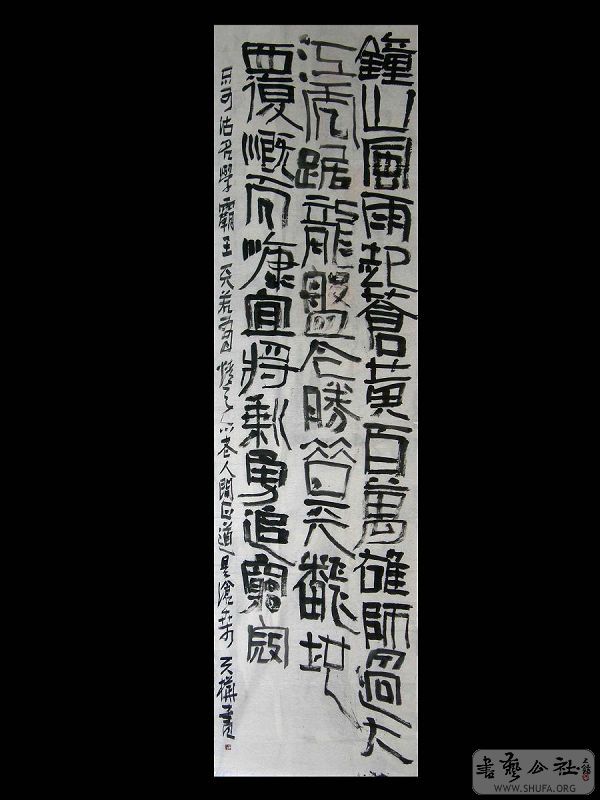 鐘山風雨起蒼黃百萬雄師過大
江虎踞龍盤今勝昔天翻地
覆慨而慷宜將剩勇追窮寇
不可沽名學霸王天若有情天亦老人間正道是滄桑 書
書藝公社
WWW.SHUFA.ORG